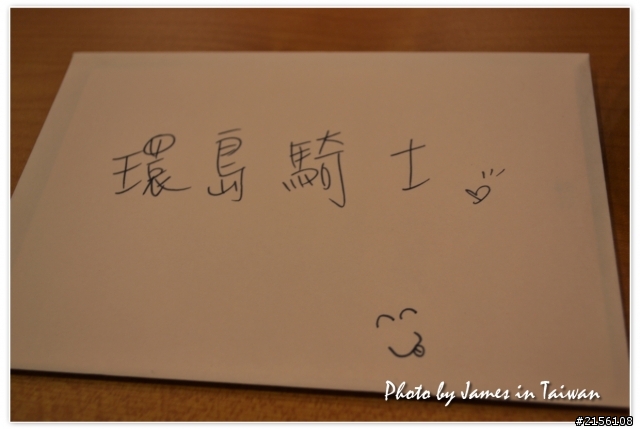 環島騎士
Photo by James in Taiwan
#2156108